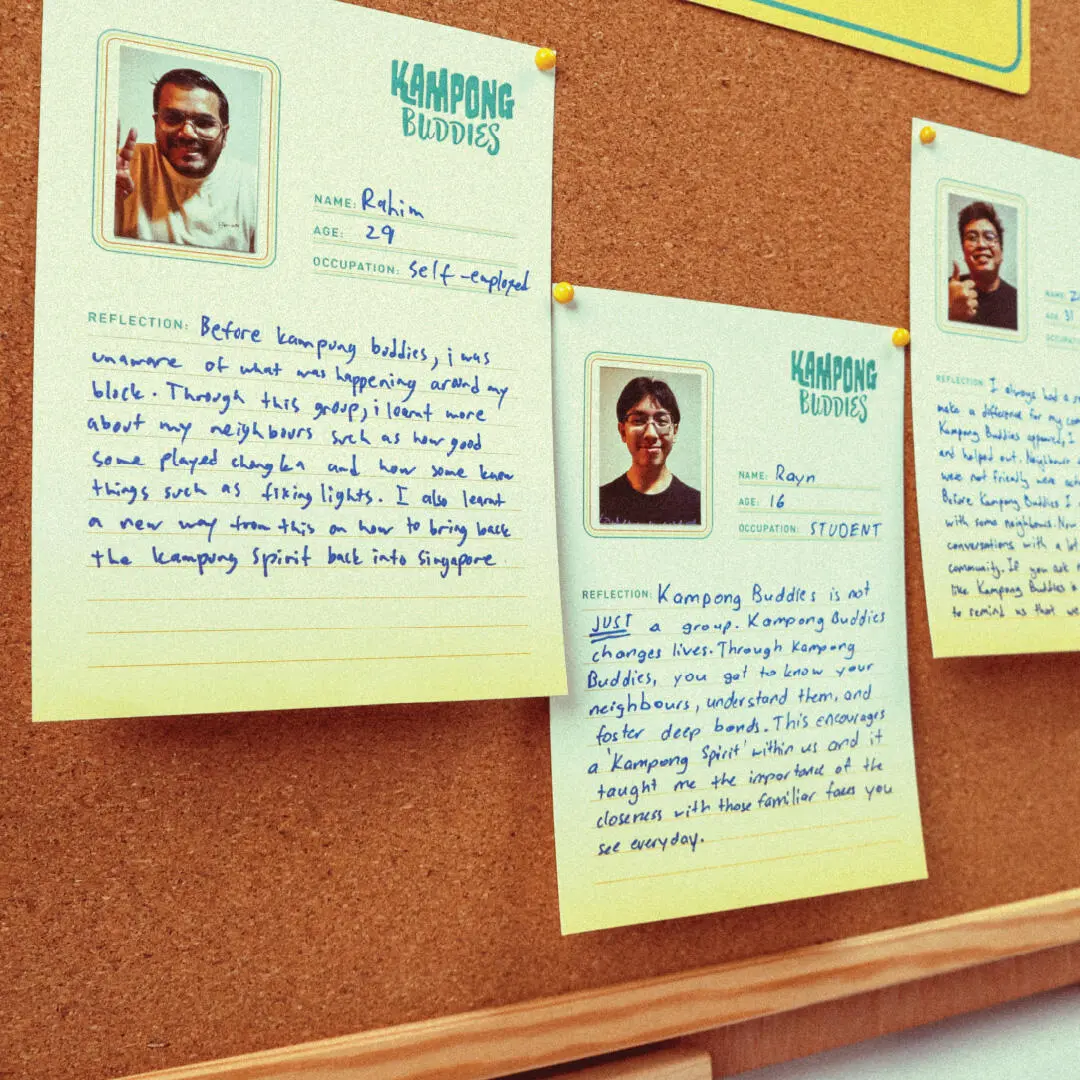 KAMPONG
BUDDIES
NAME: Rahim
AGE: 29
OCCUPATION: self-employed
REFLECTION: Before kampung buddies, i was
unaware of what was happening around my
block. Through this group, i learnt more
about my neighbours such as how good
some played chongka and how some knew
things such as fixing lights. I also learnt
a new way from this on how to bring back
the kampung spirit back into Singapore.
KAMPONG
BUDDIES
NAME: Rayn
AGE: 16
OCCUPATION: STUDENT
REFLECTION: Kampong Buddies is not
JUST a group. Kampong Buddies
changes lives. Through Kampong
Buddies, you get to know your
neighbours, understand them, and
foster deep bonds. This encourages
a 'Kampong Spirit' within us and it
taught me the importance of the
closeness with those familiar faces you
see everyday.
NAME:
AGE: 31
REFLECTION: I always had a
make a difference for my
Kampong Buddies appeared, I
and helped out. Neighbours
were not friendly were
Before Kampong Buddies I
with some neighbours. Now
conversations with a lot
community. If you ask
like Kampong Buddies is
to remind us that we